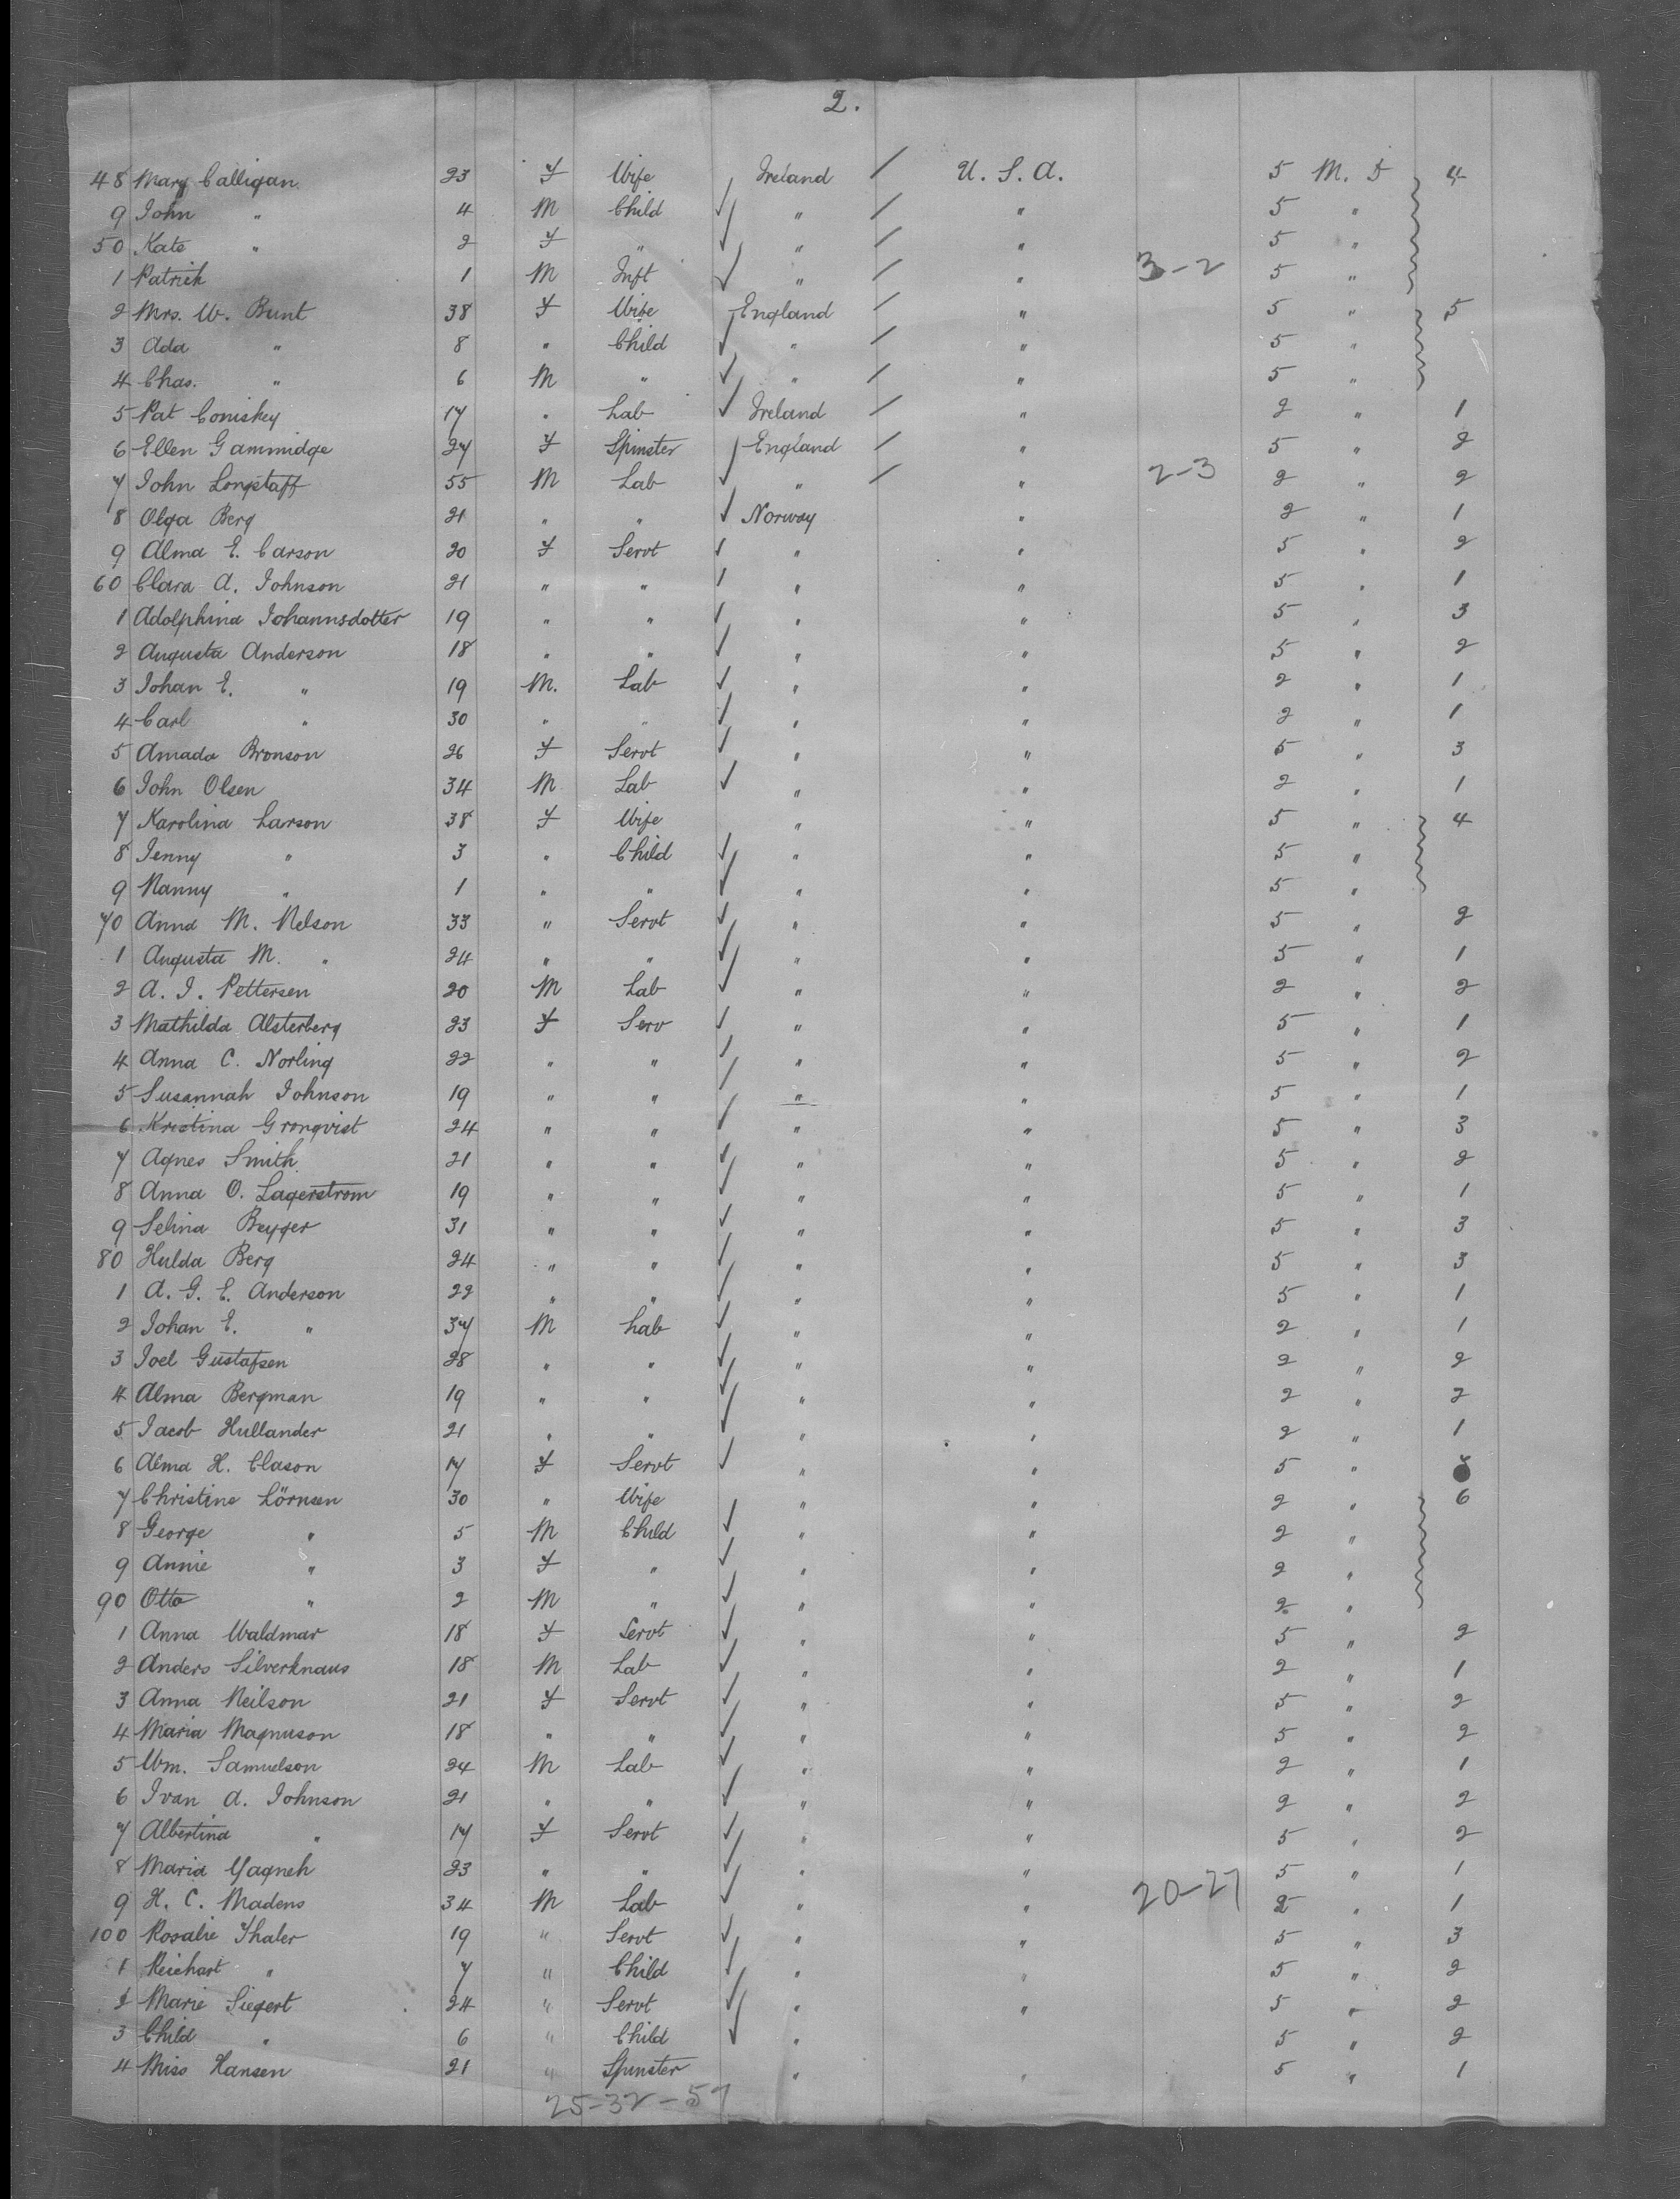 2.
48 Mary Calligan 23 F Wife Ireland / U. S. A. 5 M. D 4
9 John " 4 M Child ✓ " / " 5 "
50 Kate " 2 F " ✓ " / " 5 "
1 Patrick 1 M Inft ✓ " / " 3-2 5 "
2 Mrs. W. Bunt 38 F Wife England / " 5 " 5
3 Ada " 8 " Child ✓ " / " 5 "
4 Chas. " 6 M " ✓ " / " 5 "
5 Pat Coniskey 17 " Lab ✓ Ireland / " 2 " 1
6 Ellen Gammidge 27 F Spinster / England / " 5 " 2
7 John Longstaff 55 M Lab ✓ " / " 2-3 2 " 2
8 Olga Berg 21 " " ✓ Norway " 2 " 1
9 Alma E. Carson 20 F Servt ✓ " " 5 " 2
60 Clara A. Johnson 21 " " / " " 5 " 1
1 Adolphina Johannsdotter 19 " " ✓ " " 5 " 3
2 Augusta Anderson 18 " " ✓ " " 5 " 2
3 Johan E. " 19 M. Lab ✓ " " 2 " 1
4 Carl " 30 " " ✓ " " 2 " 1
5 Amada Bronson 26 F Servt ✓ " " 5 " 3
6 John Olsen 34 M Lab ✓ " " 2 " 1
7 Karolina Larson 38 F Wife " " 5 " 4
8 Jenny " 3 " Child ✓ " " 5 "
9 Nanny " 1 " " ✓ " " 5 "
70 Anna M. Nelson 33 " Servt ✓ " " 5 " 2
1 Augusta M. " 24 " " ✓ " " 5 " 1
2 A. J. Pettersen 20 M Lab ✓ " " 2 " 2
3 Mathilda Alsterberg 23 F Serv ✓ " " 5 " 1
4 Anna C. Norling 22 " " ✓ " " 5 " 2
5 Susannah Johnson 19 " " / " " 5 " 1
6 Kristina Gronqvist 24 " " / " " 5 " 3
7 Agnes Smith 21 " " ✓ " " 5 " 2
8 Anna O. Lagerstrom 19 " " ✓ " " 5 " 1
9 Selina Beyger 31 " " ✓ " " 5 " 3
80 Hulda Berg 24 " " ✓ " " 5 " 3
1 A. G. E. Anderson 22 " " ✓ " " 5 " 1
2 Johan E. " 37 M Lab ✓ " " 2 " 1
3 Joel Gustafsen 28 " " ✓ " " 2 " 2
4 Alma Bergman 19 " " ✓ " " 2 " 2
5 Jacob Hullander 21 " " ✓ " " 2 " 1
6 Alma H. Clason 17 F Servt ✓ " " 5 "
7 Christine Lörnsen 30 " Wife " " 2 " 6
8 George " 5 M Child ✓ " " 2 "
9 Annie " 3 F " ✓ " " 2 "
90 Otto " 2 M " ✓ " " 2 "
1 Anna Waldmar 18 F Servt ✓ " " 5 " 2
2 Anders Silverknaus 18 M Lab ✓ " " 2 " 1
3 Anna Neilson 21 F Servt ✓ " " 5 " 2
4 Maria Magnuson 18 " " ✓ " " 5 " 2
5 Wm. Samuelson 24 M Lab ✓ " " 2 " 1
6 Ivan A. Johnson 21 " " ✓ " " 2 " 2
7 Albertina " 17 F Servt ✓ " " 5 " 2
8 Maria Yagneh 23 " " ✓ " " 5 " 1
9 H. C. Madens 34 M Lab ✓ " " 20-27 2 " 1
100 Rosalie Thaler 19 " Servt ✓ " " 5 " 3
1 Reichart " 7 " Child ✓ " " 5 " 2
2 Marie Siegert 24 " Servt ✓ " " 5 " 2
3 Child " 6 " Child ✓ " 5 " 2
4 Miss Hansen 21 " Spinster " " 5 " 1
25-32-57